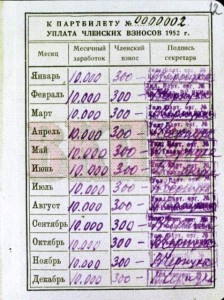 К ПАРТБИЛЕТУ № 0000002
УПЛАТА ЧЛЕНСКИХ ВЗНОСОВ 1952 г.
Месяц Месячный заработок Членский взнос Подпись секретаря
Январь 10.000 300 —
Февраль 10.000 300 —
Март 10.000 300 —
Апрель 10.000 300 —
Май 10.000 300 —
Июнь 10.000 300 —
Июль 10.000 300 —
Август 10.000 300 —
Сентябрь 10.000 300 —
Октябрь 10.000 300 —
Ноябрь 10.000 300 —
Декабрь 10.000 300 —